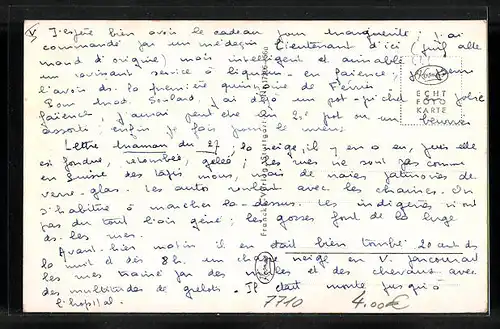 V
J'espère bien avoir le cadeau pour Marguerite; j'ai
commandé par un médecin lieutenant d'ici (juif alle
mand d'origine) mais intelligent et aimable
un ravissant service à liqueur en faïence; je pense
l'avoir ds. la première quinzaine de Février
Pour Mad. Soulard, j'ai déjà un pot- pichet jolie
faïence, j'aurai peut être un 2e pot ou un beurrier
assorti; enfin je fais pour le mieux.
Lettre maman du 27, la neige, il y en a eu, puis elle
est fondue, retombée, gelée; les rues ne sont pas comme
en Suisse des tapis mous, mais de vraies patinoires de
verre-glas. Les autos roulent avec les chaînes. On
s'habitue à marcher là-dessus. Les indigènes n'ont
pas du tout l'air gêné; les gosses font de la luge
ds. les rues.
Avant-hier matin il en était bien tombé. 20 cent ds
la nuit et dès 8h. un chasse neige en V. parcourait
les rues traîné par des mules et des chevaux avec
des multitudes de grelots - Il était monté jusqu'à
l'hopital.
ECHT
FOTO
KARTE
Franckh-Verlag Stuttgart
7710
4.00€